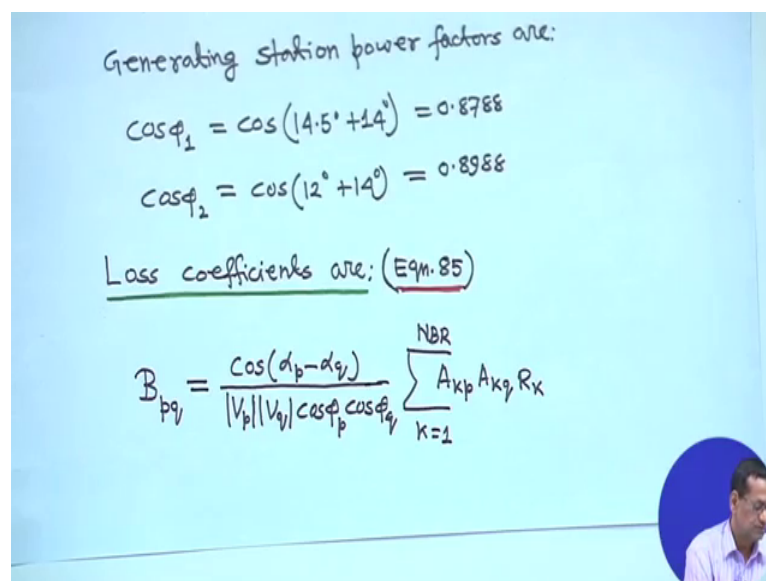 Generating station power factors are:
cosφ₁ = cos(14.5° + 14°) = 0.8788
cosφ₂ = cos(12° + 14°) = 0.8988
Loss coefficients are: (Eqn. 85)
B_pq = cos(α_p - α_q) / (|V_p||V_q| cosφ_p cosφ_q) ∑_{K=1}^{NBR} A_Kp A_Kq R_K